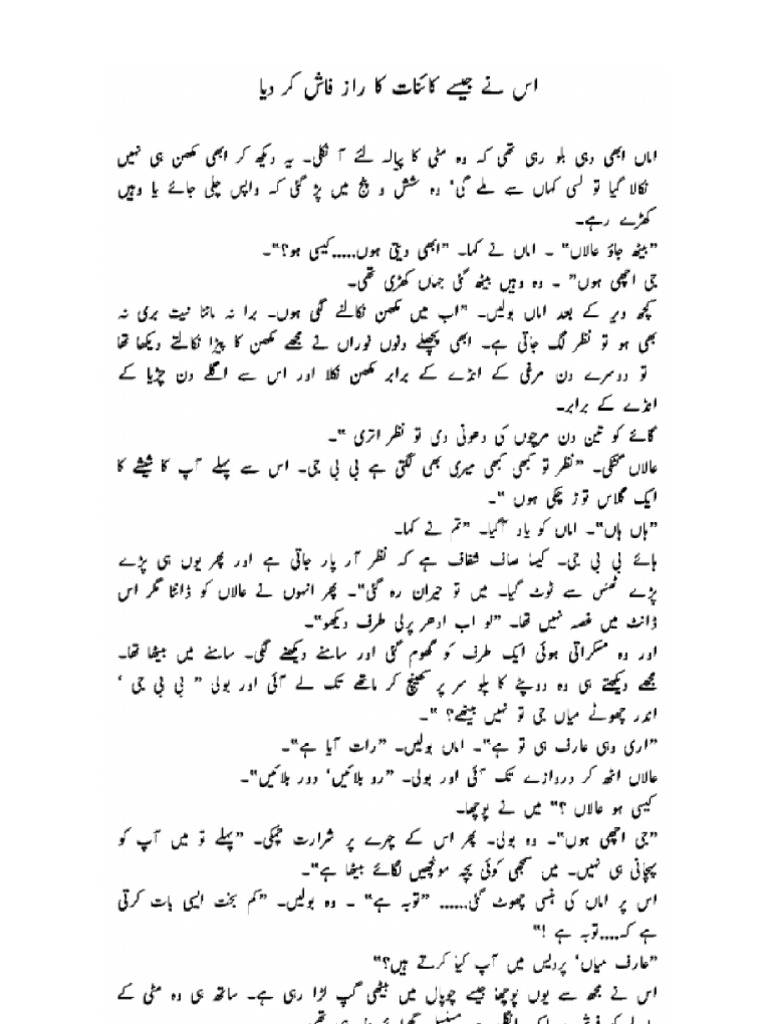 اس نے جیسے کائنات کا راز فاش کر دیا
اماں ابھی دہی بلو رہی تھی کہ وہ مٹی کا پیالہ لئے آ نکلی۔ یہ دیکھ کر ابھی مکھن ہی نہیں
نکالا گیا تو لسی کہاں سے ملے گی‘ وہ شش و پنج میں پڑ گئی کہ واپس چلی جائے یا وہیں
کھڑے رہے۔
”بیٹھ جاؤ عالاں“ ۔ اماں نے کہا۔ ”ابھی دیتی ہوں.....کیسی ہو؟“۔
جی اچھی ہوں” ۔ وہ وہیں بیٹھ گئی جہاں کھڑی تھی۔
کچھ دیر کے بعد اماں بولیں۔ ”اب میں مکھن نکالنے لگی ہوں۔ برا نہ ماننا نیت بری نہ
بھی ہو تو نظر لگ جاتی ہے۔ ابھی پچھلے دنوں نوراں نے مجھے مکھن کا پیڑا نکالتے دیکھا تھا
تو دوسرے دن مرغی کے انڈے کے برابر مکھن نکلا اور اس سے اگلے دن چڑیا کے
انڈے کے برابر۔
گائے کو تین دن مرچوں کی دھونی دی تو نظر اتری “۔
عالاں گنگی۔ ”نظر تو کبھی کبھی میری بھی لگتی ہے بی بی جی۔ اس سے پہلے آپ کا شیشے کا
ایک گلاس توڑ چکی ہوں “۔
”ہاں ہاں“۔ اماں کو یاد آگیا۔ ”تم نے کہا۔
ہائے بی بی جی۔ کیسا صاف شفاف ہے کہ نظر آر پار جاتی ہے اور پھر یوں ہی پڑے
پڑے ٹھس سے ٹوٹ گیا۔ میں تو حیران رہ گئی“۔ پھر انہوں نے عالاں کو ڈانٹا مگر اس
ڈانٹ میں غصہ نہیں تھا۔ ”لو اب ادھر پرلی طرف دیکھو“۔
اور وہ مسکراتی ہوئی ایک طرف کو گھوم گئی اور سامنے دیکھنے لگی۔ سامنے میں بیٹھا تھا۔
مجھے دیکھتے ہی وہ دوپٹے کا پلو سر پر کھینچ کر ماتھے تک لے آئی اور بولی ” بی بی جی ‘
اندر چھوٹے میاں جی تو نہیں بیٹھے؟ “۔
”اری وہی عارف ہی تو ہے“۔ اماں بولیں۔ ”رات آیا ہے“۔
عالاں اٹھ کر دروازے تک آئی اور بولی۔ ”رو بلائیں‘ دور بلائیں“۔
کیسی ہو عالاں ؟“ میں نے پوچھا۔
”جی اچھی ہوں“۔ وہ بولی۔ پھر اس کے چہرے پر شرارت چمکی۔ ”پہلے تو میں آپ کو
پہچانی ہی نہیں۔ میں سمجھی کوئی بچہ مونچھیں لگائے بیٹھا ہے“۔
اس پر اماں کی ہنسی چھوٹ گئی...... ”توبہ ہے“ ۔ وہ بولیں۔ ”کم بخت ایسی بات کرتی
ہے کہ....توبہ ہے !“
”عارف میاں‘ پردیس میں آپ کیا کرتے ہیں؟“
اس نے مجھ سے یوں پوچھا جیسے چوپال میں بیٹھی گپ لڑا رہی ہے۔ ساتھ ہی وہ مٹی کے